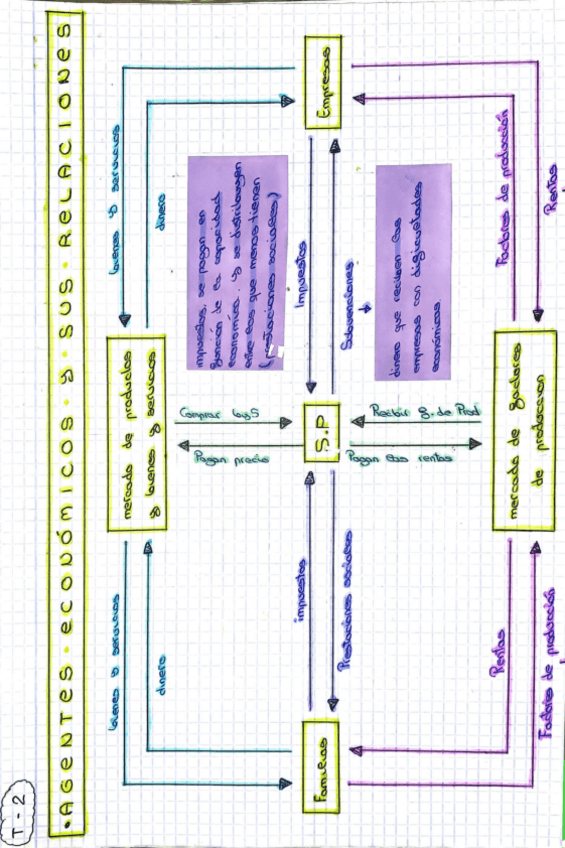 T-2
• AGENTES • ECONÓMICOS • Y • SUS • RELACIONES
bienes y servicios
dinero
mercado de productos
y bienes y servicios
bienes y servicios
dinero
Comprar byS
Pagan precio
impuestos, se pagan en
función de la capacidad
económica. y se distribuyen
entre los que menos tienen
(prestaciones sociales)
Familias
impuestos
Prestaciones sociales
S.P
Impuestos
Subvenciones
Empresas
dinero que reciben las
empresas con dificultades
económicas.
Recibir f. de Prod
Pagan las rentas
Rentas
Factores de producción
mercado de factores
de produccion
Factores de producción
Rentas